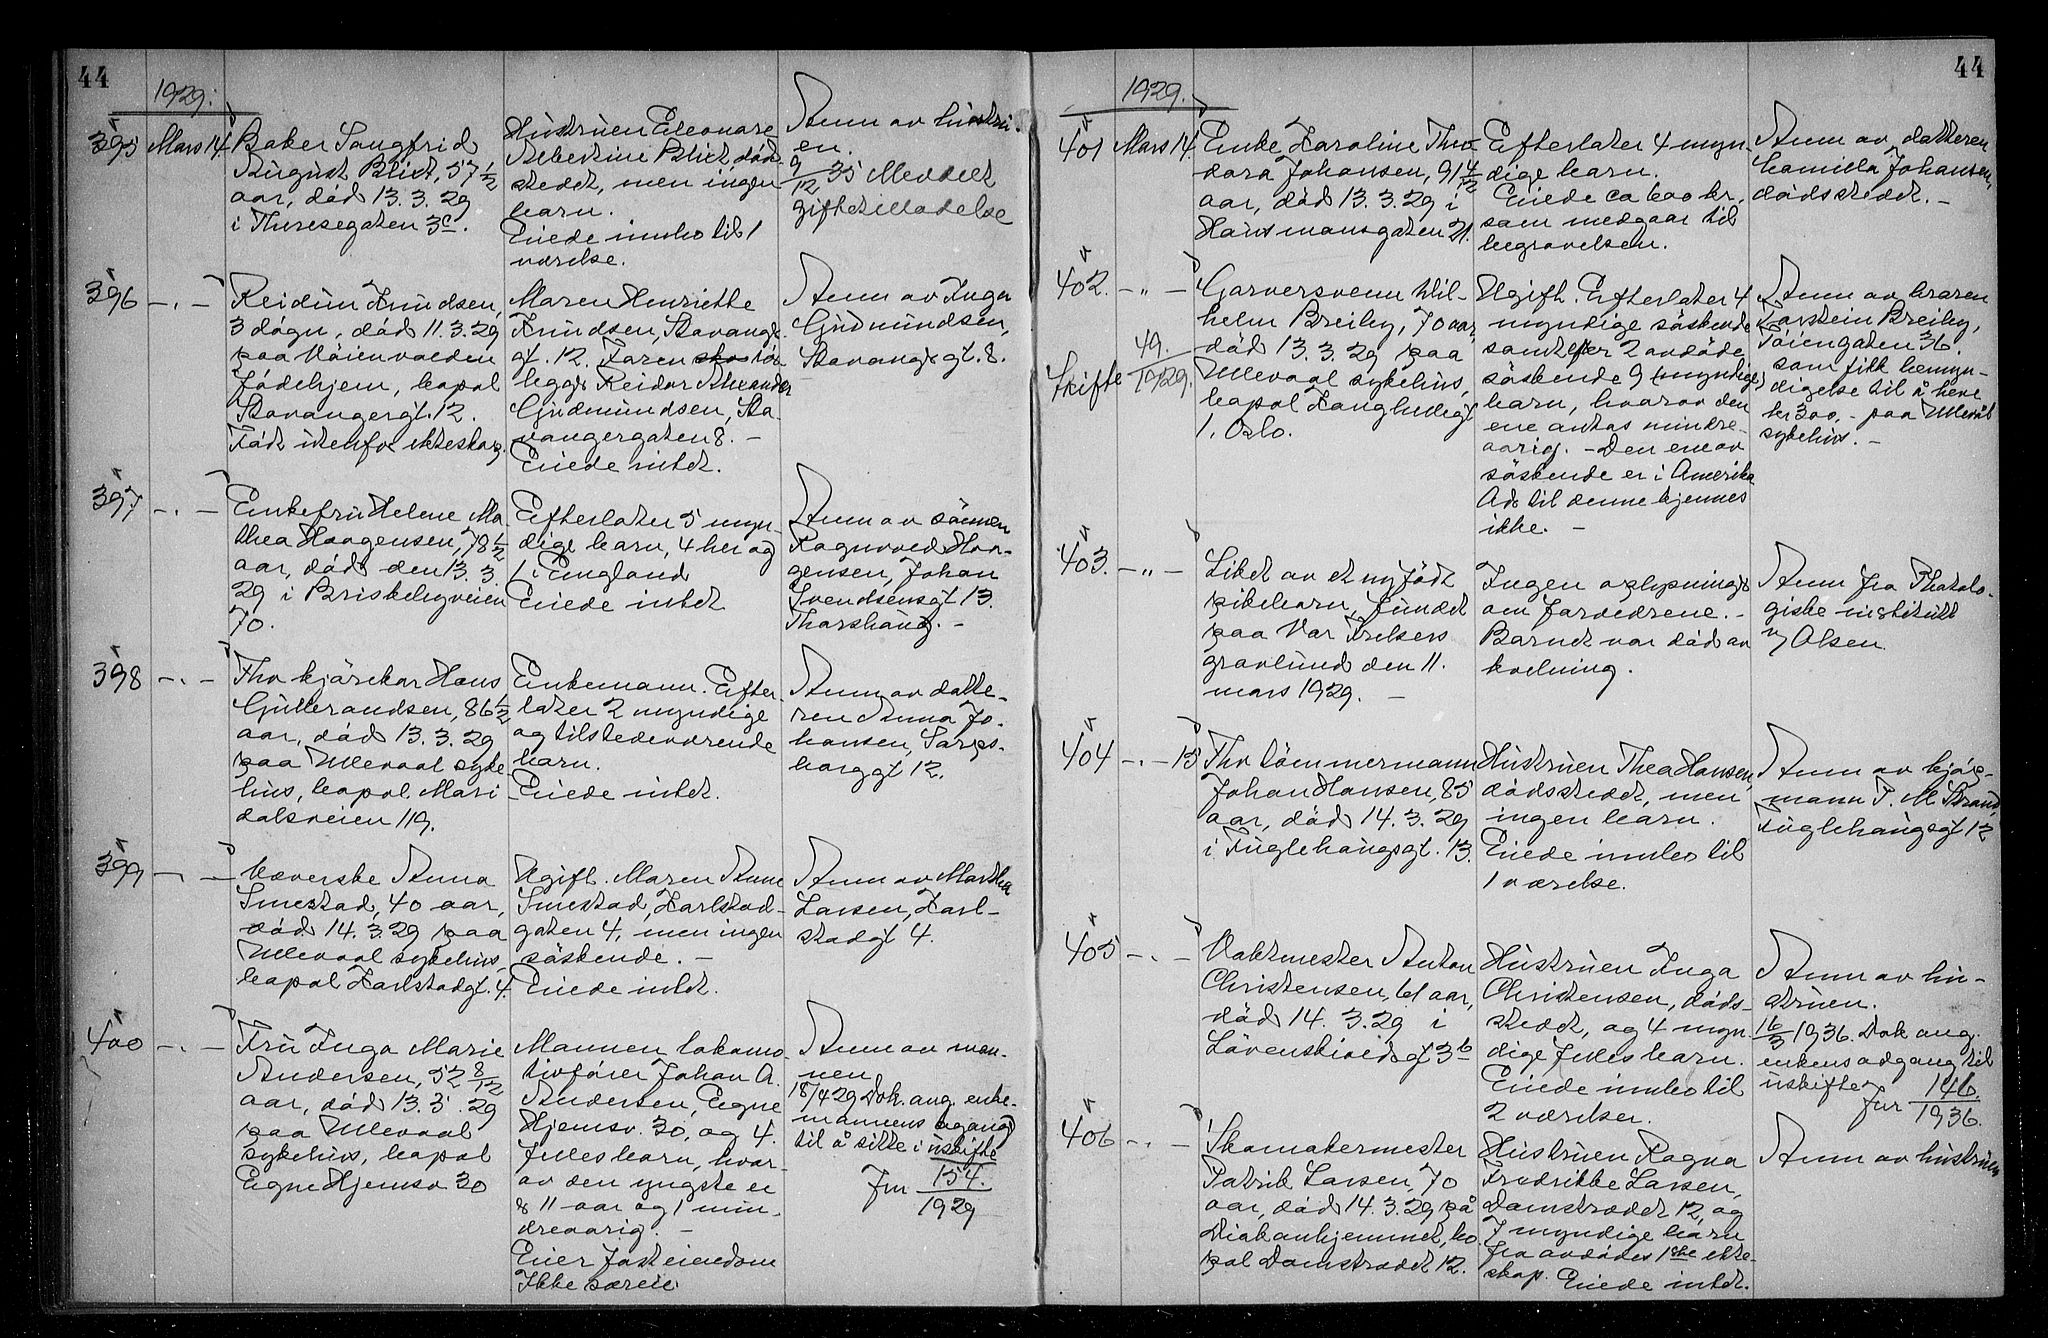 44
1929.
395 Mars 14. Baker Sangfrid
August Blict, 57 1/2
aar, död 13.3.29
i Theresegaten 3c.
Hustruen Eleonare
Albertine Blict, död-
stedet, men ingen
barn.
Eiede innbo til 1
værelse.
Anm av hustru-
en.
9/12 35 Meddelt
giftetilladelse
396 -.- Reidun Knudsen,
3 døgn, död 11.3.29
paa Våienvolden
födehjem, bopæl
Stavangergt. 12.
Födt utenfor ekteskap.
Maren Henriette
Knudsen, Stavangr
gt. 12. Faren
legges Reidar Alexander
Gudmundsen, Sta-
vangergaten 8. -
Eiede intet.
Anm av Inga
Gudmundsen,
Stavangr gt. 8.
397 -.- Enkefru Helene Ma-
thea Haagensen, 78 1/2
aar, död den 13.3.
29 i Briskebyveien
70.
Efterlater 5 myn-
dige barn, 4 her og
1 i England
Eiede intet
Anm av sönnen
Ragnvald Haa-
gensen, Johan
Svendsensgt 13.
Thorshaug. -
398 -.- Fhv kjörekar Hans
Gulbrandsen, 86 1/2
aar, död 13.3.29
paa Ullevaal syke
hus, bopæl Mari
dalsveien 119.
Enkemann. Efter
later 2 myndige
og tilstedeværende
barn.
Eiede intet.
Anm av datte-
ren Anna Jo-
hansen, Sarps-
borggt 12.
399 -.- Væverske Anna
Smestad, 40 aar,
död 14.3.29 paa
Ullevaal sykehus,
bopæl Karlstadgt. 4.
Ugift. Maren Anne
Smestad, Karlstad-
gaten 4, men ingen
söskende. -
Eiede intet.
Anm av Martha
Larsen, Karl-
stadgt 4.
400 -.- Fru Inga Marie
Andersen, 52 8/12
aar, död 13.3.29
paa Ullevaal
sykehus, bopæl
Egne Hjemsv 30
Mannen lokomo-
tivförer Johan A.
Andersen, Egne
Hjemsv. 30, og 4
felles barn, hvor-
av den yngste er
11 aar og 1 min-
dreaarig. -
Eier fast eiendom
Ikke særeie
Anm av man-
nen
18/4 29 Dok. ang. enke-
mannens adgang
til å sitte i uskifte
Jnr 154.
1929
44
1929.
401 Mars 14. Enke Karoline Theo-
dora Johansen, 91 4/12
aar, död 13.3.29 i
Hausmansgaten 21.
Efterlater 4 myn-
dige barn.
Eiede ca 600 kr.,
som medgaar til
begravelsen.
Anm av datteren
Camilla Johansen,
dödsstedet. -
402. -"- Garversvenn Wil-
helm Breiby, 70 aar,
död 13.3.29 paa
Ullevaal sykehus,
bopæl
1, Oslo.
Skifte 49.
1929.
Ugift. Efterlater 4
myndige söskende
samt efter 2 avdöde
söskende 9 (myndige)
barn, hvorav den
ene antas mindre-
aarig. - Den ene av
söskende er i Amerika
Adr til denne kjennes
ikke. -
Anm av broren
Karstein Breiby,
Töiengaten 36.
som fikk bemyn-
digelse til å heve
kr 300,- paa Ullevål
sykehus. -
403. -"- Liket av et nyfödt
pikebarn, fundet
paa Vår Frelsers
gravlund den 11.
mars 1929. -
Ingen oplysninger
om forældrene. -
Barnet var död av
kvelning.
Anm fra Phatolo-
giske institutt
v/ Olsen.
404 -.- 15 Fhv tömmermann
Johan Hansen, 85
aar, död 14.3.29
i Fuglehaugsgt. 13.
Hustruen Thea Hansen,
dödsstedet, men
ingen barn.
Eiede innbo til
1 værelse.
Anm av kjöp-
mann P. M. Strand,
Fuglehaugsgt 12
405 -.- Vaktmester Anton
Christensen, 61 aar,
död 14.3.29 i
Lövenskioldsgt 3b
Hustruen Inga
Christensen, döds-
stedet, og 4 myn
dige felles barn.
Eiede innbo til
2 værelser.
Anm av hu-
struen.
16/3 1936. Dok ang.
enkens adgang til
uskifte
Jnr 146.
1936.
406 -.- Skomakermester
Patrik Larsen, 70
aar, död 14.3.29 på
Diakonhjemmet, bo-
pæl Damstrædet 12.
Hustruen Ragna
Fredrikke Larsen,
Damstrædet 12, og
7 myndige barn
fra avdödes 1ste ekte-
skap. Eiede intet.
Anm av hustruen